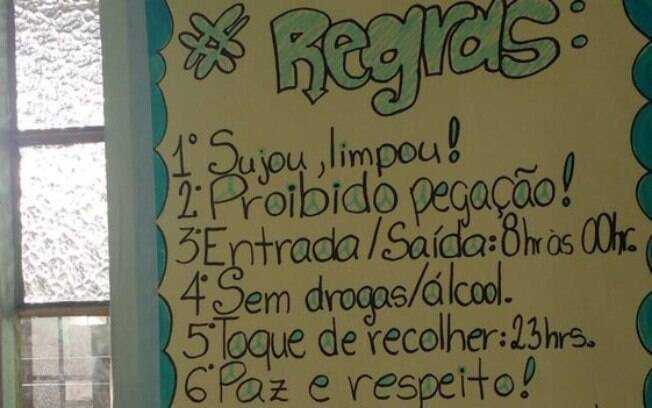 # Regras:
1° Sujou, limpou!
2° Proibido pegação!
3° Entrada/Saída: 8hr às 00hr.
4° Sem drogas/álcool.
5° Toque de recolher: 23hrs.
6° Paz e respeito!